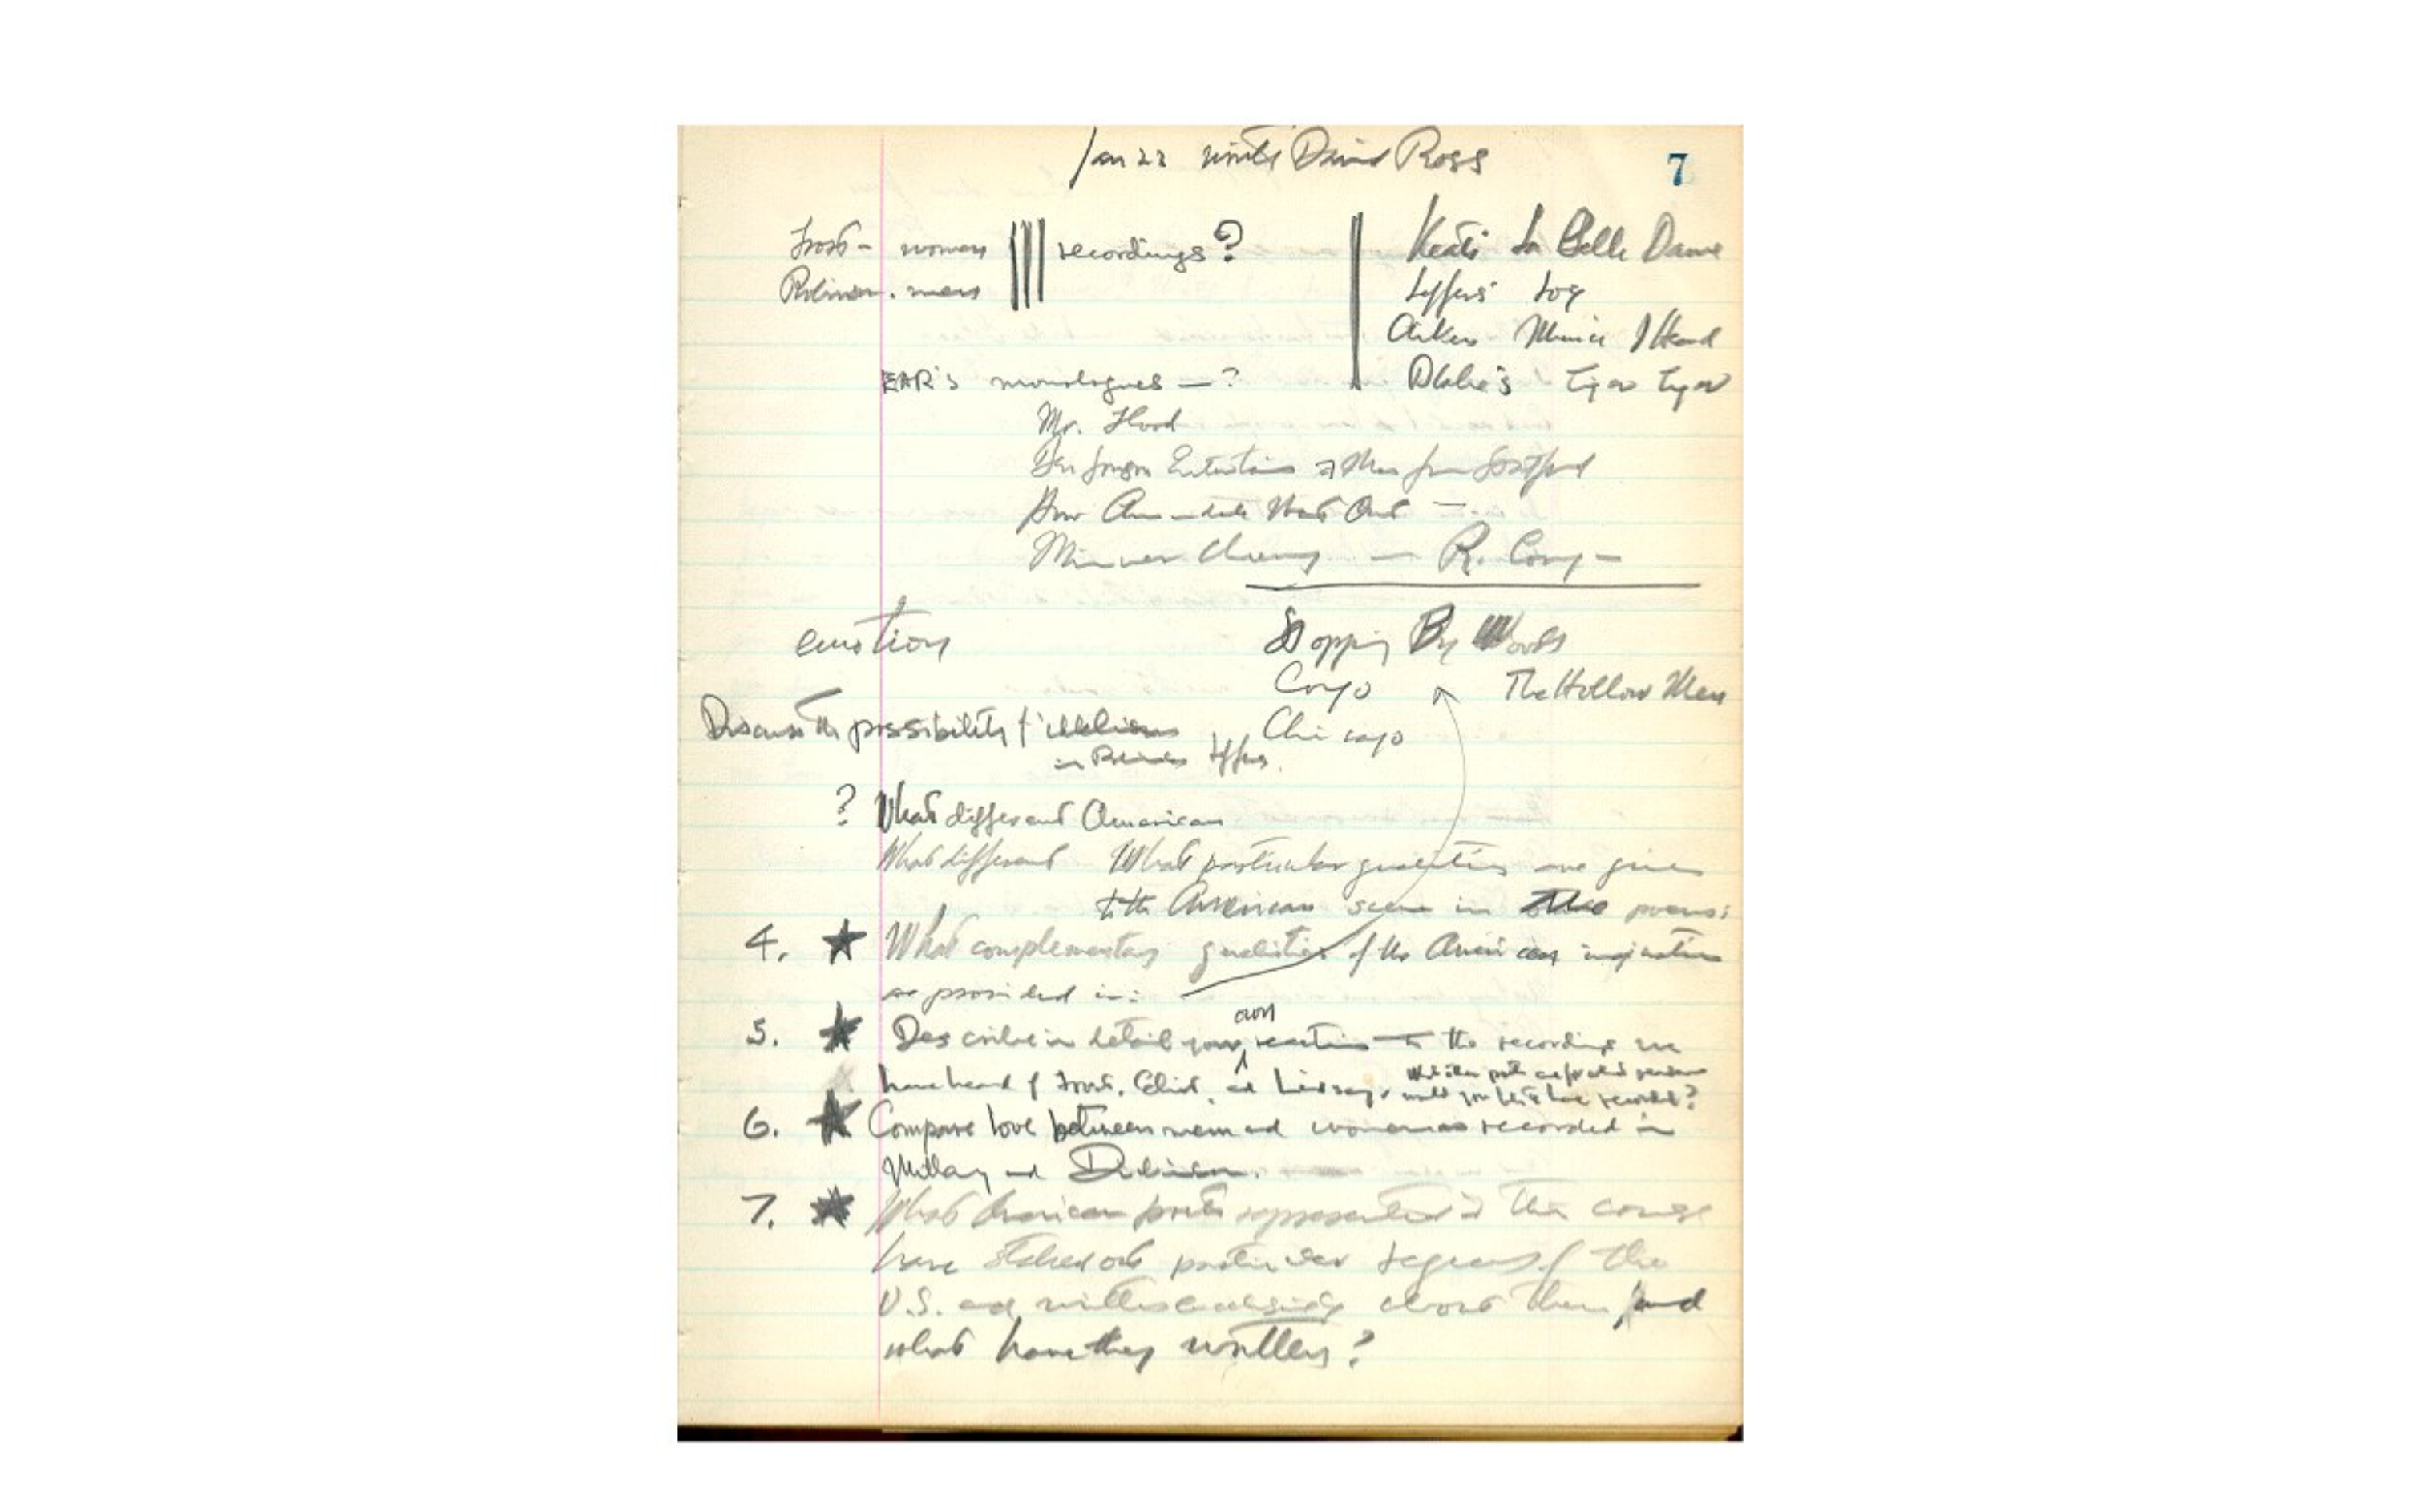 Jan 22 write David Ross
7
Frost - women recordings? Keats La Belle Dame
Robinson. men Jeffers' Joy
Aiken Music I Heard
EAR's monologues — ? Blake's Tiger Tiger
Mr. Flood
Ben Jonson Entertains a Man from Stratford
How Annandale Went Out —
Miniver Cheevy — R. Cory —
emotion Stopping By Woods
Congo The Hollow Men
Discuss the possibility of Chicago
in Jeffers.
? What different American
What different What particular qualities are given
to the American scene in poems:
4. ★ What complementary qualities of the American imagination
are provided in:
5. ★ Describe in detail your own reaction to the recordings we
have heard of Frost, Eliot, and Lindsay. What other poets
would you like to have recorded?
6. ★ Compare love between men and women as recorded in
Millay and Robinson.
7. ★ What American poets represented in this course
have staked out particular regions of the
U.S. and written about them and
what have they written?